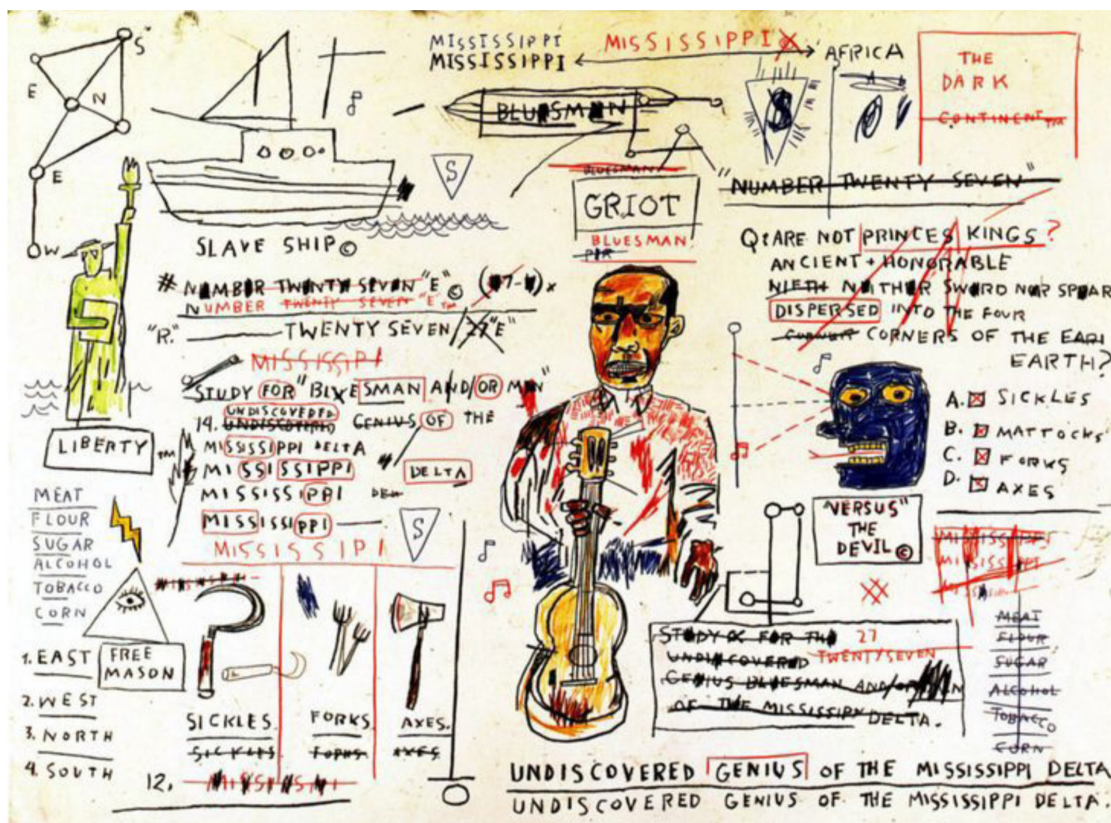 S
E
N
E
W
MISSISSIPPI
MISSISSIPPI
MISSISSIPPI
AFRICA
THE
DARK
CONTINENT TM
BLUESMAN
S
S
BLUESMAN
GRIOT
BLUESMAN
"NUMBER TWENTY SEVEN"
SLAVE SHIP ©
# NUMBER TWENTY SEVEN "E" ©
NUMBER TWENTY SEVEN "E" TM
"R." TWENTY SEVEN/27 "E"
MISSISSIPI
STUDY FOR "BLUESMAN AND/OR MAN"
UNDISCOVERED
14. UNDISCOVERED GENIUS OF THE
MISSISSIPPI DELTA
MISSISSIPPI DELTA
MISSISSIPPI
MISSISSIPPI
S
MISSISSIPI
LIBERTY TM
MEAT
FLOUR
SUGAR
ALCOHOL
TOBACCO
CORN
FREE
MASON
1. EAST
2. WEST
3. NORTH
4. SOUTH
SICKLES.
SICKLES
FORKS.
FORKS
AXES.
AXES
12.
Q: ARE NOT PRINCES KINGS?
ANCIENT + HONORABLE
NIETH NEITHER SWORD NOR SPEAR
DISPERSED INTO THE FOUR
CORNER CORNERS OF THE EARI
EARTH?
A. SICKLES
B. MATTOCKS
C. FORKS
D. AXES
"VERSUS"
THE
DEVIL ©
MISSISSIPPI
MISSISSIPI
MEAT
FLOUR
SUGAR
ALCOHOL
TOBACCO
CORN
STUDY FOR THE 27
UNDISCOVERED TWENTYSEVEN
GENIUS BLUESMAN AND/OR MAN
OF THE MISSISSIPPI DELTA.
UNDISCOVERED GENIUS OF THE MISSISSIPPI DELTA
UNDISCOVERED GENIUS OF THE MISSISSIPPI DELTA.